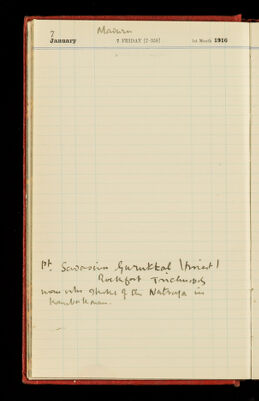 7
Madura
January 7 FRIDAY [7-359] 1st Month 1916
Pt. Sadasiva Gurukkal (Priest)
Rockfort Trichinopoly
now who of the Nataraja in
Kumbakonam.